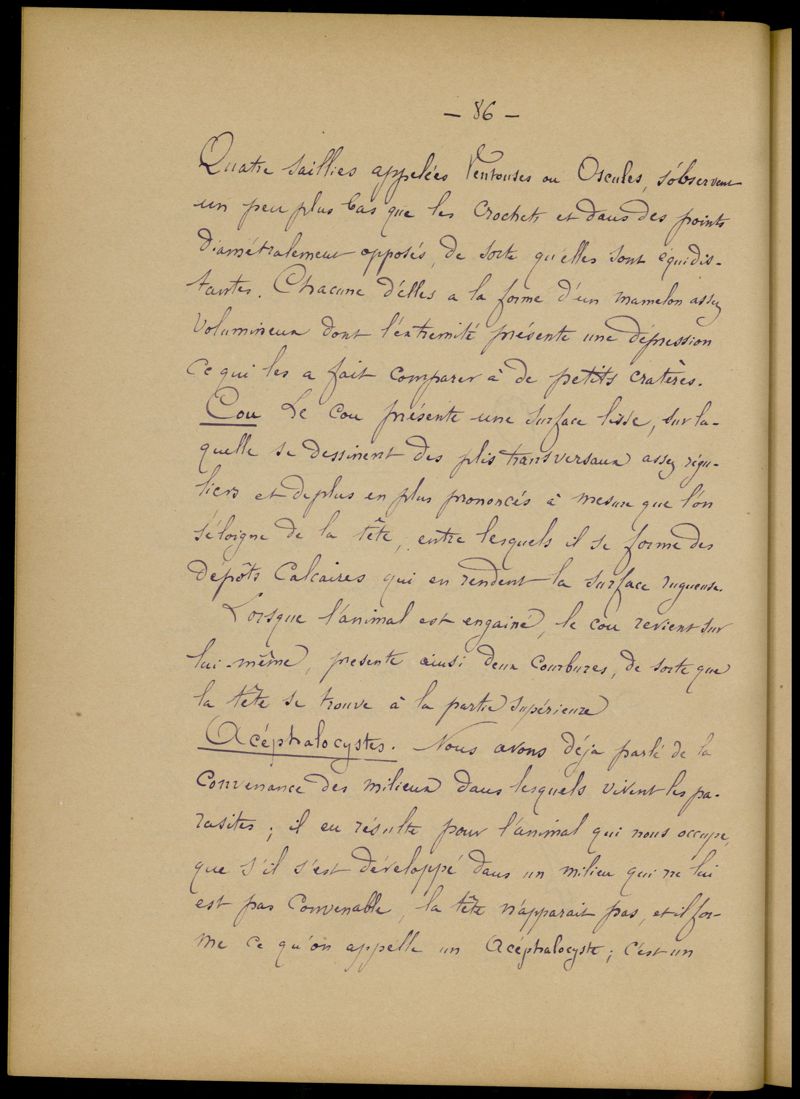 — 86 —
Quatre saillies appelées Ventouses ou Oscules, s'observent
un peu plus bas que les Crochets et dans des points
Diamétralement opposés, de sorte qu'elles sont équidis-
tantes. Chacune d'elles a la forme d'un mamelon assez
Volumineux dont l'extremité présente une dépression
ce qui les a fait comparer à de petits cratères.
Cou Le cou présente une surface lisse, sur la-
quelle se dessinent des plis transversaux assez régu-
liers et de plus en plus prononcés à mesure que l'on
s'éloigne de la tête, entre lesquels il se forme des
Dépôts Calcaires qui en rendent la surface rugueuse.
Lorsque l'animal est engainé, le cou revient sur
lui-même, presente ainsi deux Courbures, de sorte que
la tête se trouve à la partie supérieure
Acéphalocystes. Nous avons déja parlé de la
Convenance des milieux dans lesquels vivent les pa-
rasites ; il en résulte pour l'animal qui nous occupe,
que s'il s'est développé dans un milieu qui ne lui
est pas Convenable, la tête n'apparait pas, et il for-
me ce qu'on appelle un Acéphalocyste ; c'est un